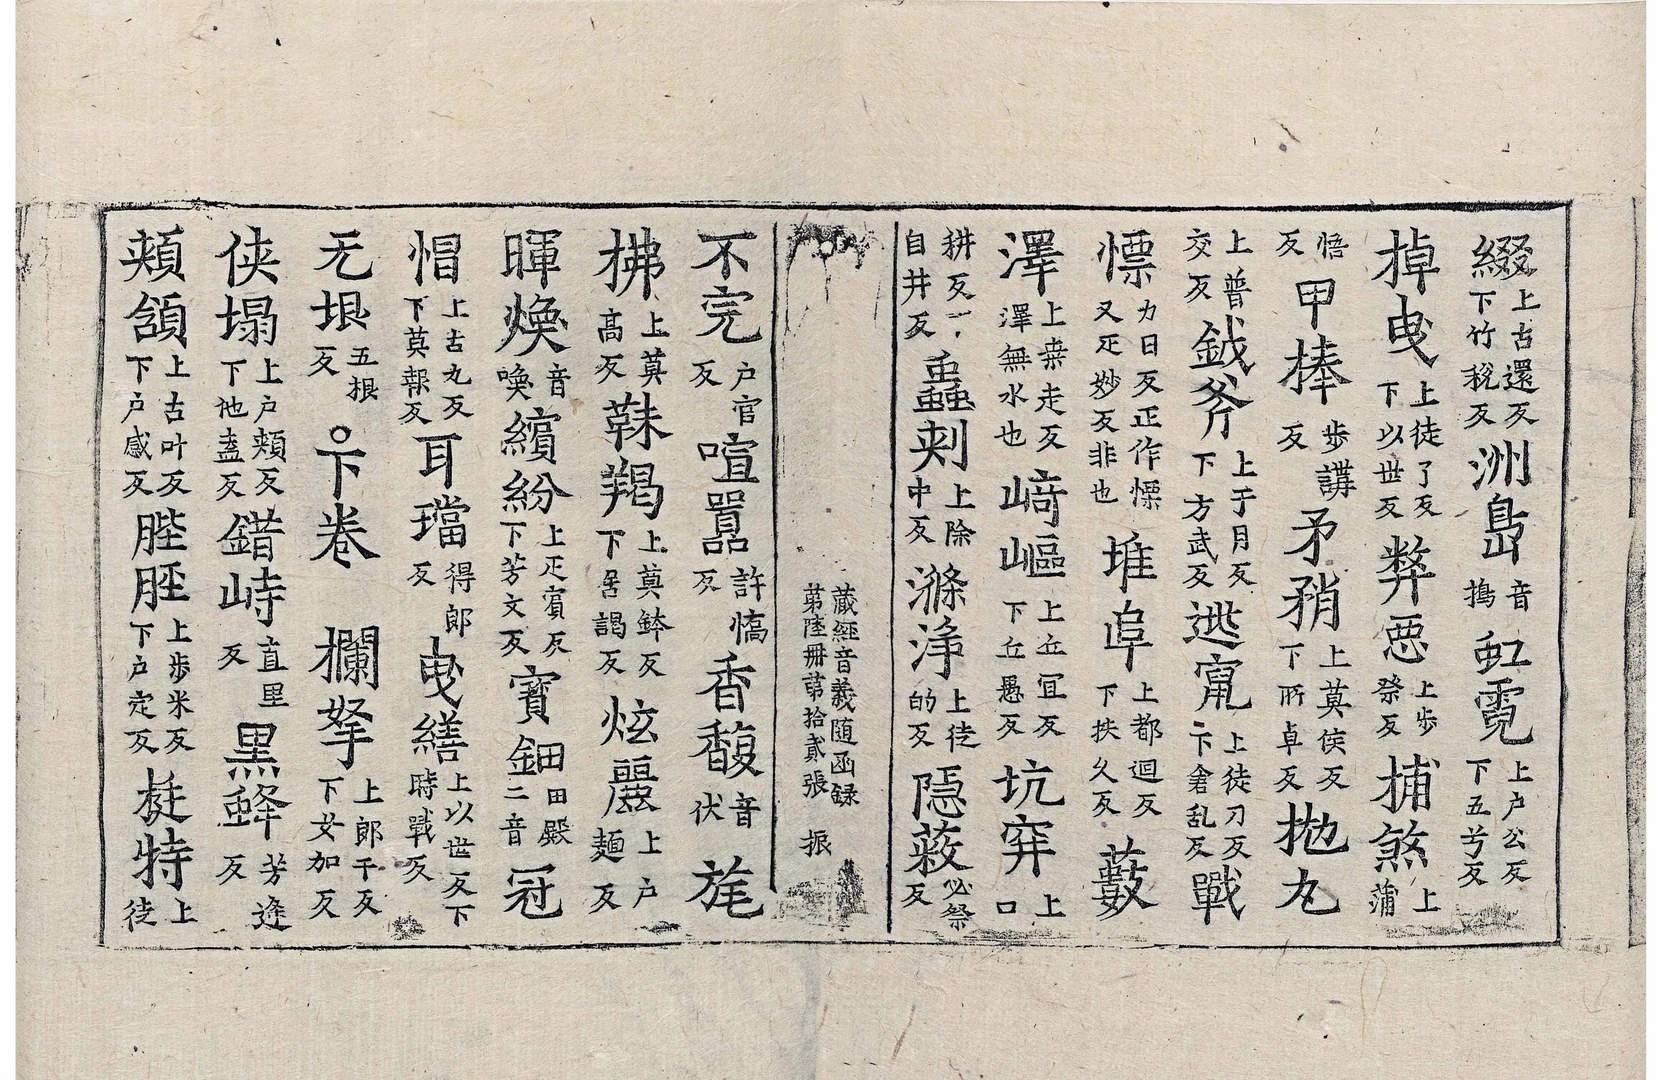 綴上古還反下竹稅反洲島音搗虹霓上户公反下五兮反
掉曳上徒了反下以世反弊惡上步祭反捕煞上蒲
悟反甲棒步講反矛矟上莫侯反下所卓反抛丸
上普交反鉞斧上于月反下方武反逃竄上徒刀反下倉乱反戰
慓力日反正作慄又疋妙反非也堆阜上都迴反下扶久反藪
澤上桒走反澤無水也﨑嶇上丘冝反下丘愚反坑穽上口
耕反下自井反蟲刾上除中反滌浄上徒的反隱蔽必祭反
藏經音義随函録第陸册第拾貳張 振
不完户官反喧嚣許憍反香馥音伏旄
拂上莫髙反靺羯上莫鉢反下居謁反炫麗上户麺反
暉煥音喚繽紛上疋賓反下芳文反寶鈿田殿二音冠
帽上古丸反下莫報反耳璫得郎反曳繕上以世反下時戰反
无垠五根反○下卷 欄拏上郎干反下女加反
侠塌上户頰反下他盍反錯峙直里反黑蜂芳逢反
頰頷上古叶反下户感反䏶脛上步米反下户定反挺特上徒